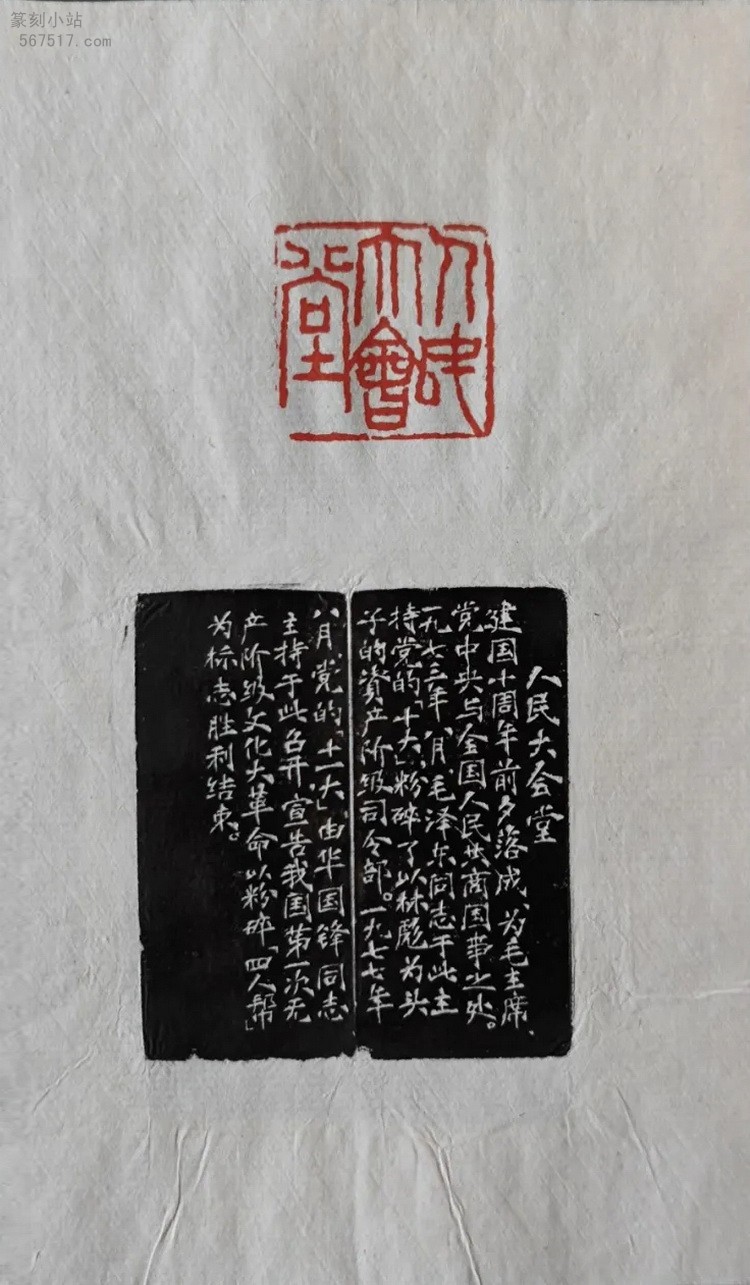 篆刻小站
567517.com
人民
大會
堂
人民大会堂
建国十周年前夕落成、为毛主席、
党中央与全国人民共商国事之处。
一九七三年八月毛泽东同志于此主
持党的「十大」粉碎了以林彪为头
子的資产阶级司令部。一九七七年
八月党的「十一大」由华国锋同志
主持于此召开,宣告我国第一次无
产阶级文化大革命以粉碎「四人帮」
为标志胜利结束。